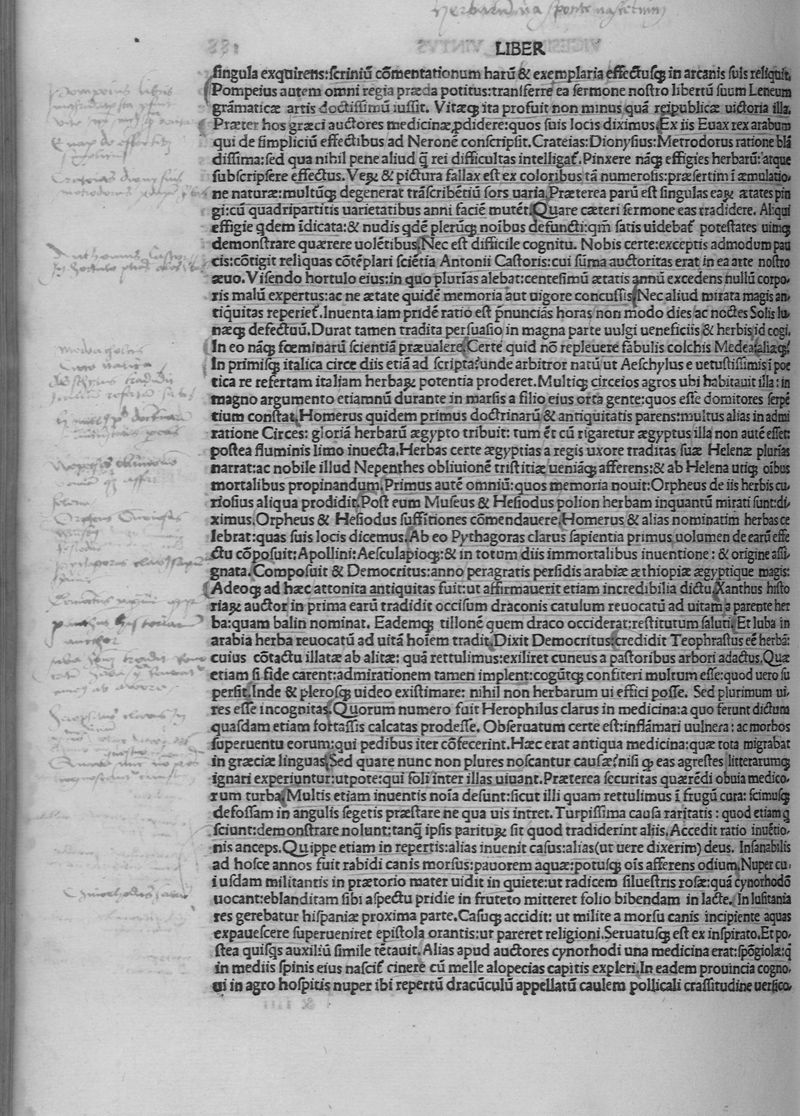 LIBER
singula exquirens:scriniū cōmentationum harū & exemplaria effectusq; in arcanis suis reliquit.
Pompeius autem omni regia præda potitus:transferre ea sermone nostro libertū suum Leneum
grāmaticæ artis doctissimū iussit. Vitæq; ita profuit non minus quā reipublicæ uictoria illa.
Præter hos græci auctores medicinæ ꝓdidere:quos suis locis diximus.Ex iis Euax rex arabum
qui de simpliciū effectibus ad Neronē conscripsit.Crateias:Dionysius:Metrodorus ratione blā
dissima:sed qua nihil pene aliud q̄ rei difficultas intelligat̄.Pinxere nāq; effigies herbarū:atque
subscripsere effectus.Veꝝ & pictura fallax est ex coloribus tā numerosis:præsertim ī æmulatio,
ne naturæ:multūq; degenerat trāscribētiū sors uaria.Præterea parū est singulas eaꝝ ætates pin
gi:cū quadripartitis uarietatibus anni faciē mutēt.Quare cæteri sermone eas tradidere. Aliqui
effigie qdem īdicata:& nudis qdē plerūq; noībus defuncti:qm̄ satis uidebat̄ potestates uimq;
demonstrare quærere uolētibus.Nec est difficile cognitu. Nobis certe:exceptis admodum pau
cis:cōtigit reliquas cōtēplari sciētia Antonii Castoris:cui sūma auctoritas erat in ea arte nostro
æuo. Visendo hortulo eius:in quo plurías alebat:centesimū ætatis annū excedens nullū corpo,
ris malū expertus:ac ne ætate quidē memoria aut uigore concussis.Nec aliud mirata magis an,
tiquitas reperiet̄.Inuenta iam pridē ratio est p̄nuncians horas non modo dies ac noctes Solis lu,
næq; defectuū.Durat tamen tradita persuasio in magna parte uulgi ueneficiis & herbis id cogi.
In eo nāq; fœminarū scientiā præualere.Certe quid nō repleuere fabulis colchis Medea:aliæq;?
In primisq; italica circe diis etiā ad scripta?unde arbitror natū ut Aeschylus e uetustissimis ī poe
tica re refertam italiam herbaꝝ potentia proderet.Multiq; circeios agros ubi habitauit illa:in
magno argumento etiamnū durante in marsis a filio eius orta gente:quos esse domitores serpē
tium constat.Homerus quidem primus doctrinarū & antiquitatis parens:multus alias in admi
ratione Circes: gloriā herbarū ægypto tribuit: tum ēt cū rigaretur ægyptus illa non autē esset:
postea fluminis limo inuecta.Herbas certe ægyptias a regis uxore traditas suæ Helenæ plurías
narrat:ac nobile illud Nepenthes obliuionē tristitiæ ueniāq; afferens:& ab Helena utiq; oibus
mortalibus propinandum.Primus autē omniū:quos memoria nouit:Orpheus de iis herbis cu,
riosius aliqua prodidit.Post eum Museus & Hesiodus polion herbam inquantū mirati sunt:di,
ximus.Orpheus & Hesiodus suffitiones cōmendauere.Homerus & alias nominatim herbas ce
lebrat:quas suis locis dicemus.Ab eo Pythagoras clarus sapientia primus uolumen de earū effe
ctu cōposuit:Apollini:Aesculapioq;:& in totum diis immortalibus inuentione : & origine assi,
gnata.Composuit & Democritus:anno peragratis persidis arabiæ æthiopiæ ægyptique magis:
Adeoq; ad hæc attonita antiquitas fuit:ut affirmauerit etiam incredibilia dictu.Xanthus histo
riaꝝ auctor in prima earū tradidit occisum draconis catulum reuocatū ad uitam a parente her
ba:quam balin nominat. Eademq; tillonē quem draco occiderat:restitutum saluti.Et Iuba in
arabia herba reuocatū ad uitā hoīem tradit.Dixit Democritus:credidit Teophrastus eē herbā:
cuius cōtactu illatæ ab alitæ: quā rettulimus:exiliret cuneus a pastoribus arbori adactus.Quæ
etiam si fide carent:admirationem tamen implent:cogūtq; confiteri multum esse:quod uero su
persit.Inde & plerosq; uideo existimare: nihil non herbarum ui effici posse. Sed plurimum ui,
res esse incognitas.Quorum numero fuit Herophilus clarus in medicina:a quo ferunt dictum
quasdam etiam fortassis calcatas prodesse. Obseruatum certe est:inflāmari uulnera : ac morbos
superuentu eorum:qui pedibus iter cōfecerint.Hæc erat antiqua medicina:quæ tota migrabat
in græciæ linguas.Sed quare nunc non plures noscantur causæ?nisi q; eas agrestes litterarumq;
ignari experiuntur:utpote:qui soli inter illas uiuant.Præterea securitas quærēdi obuia medico,
rum turba.Multis etiam inuentis noīa desunt:sicut illi quam rettulimus ī frugū cura: scimusq;
defossam in angulis segetis præstare ne qua uis intret.Turpissima causa raritatis : quod etiam q
sciunt:demonstrare nolunt:tanq̄ ipsis parituꝝ sit quod tradiderint aliis.Accedit ratio inuētio,
nis anceps.Quippe etiam in repertis:alias inuenit casus:alias(ut uere dixerim) deus. Insanabilis
ad hosce annos fuit rabidi canis morsus:pauorem aquæ:potusq; oīs afferens odium.Nuper cu,
iusdam militantis in prætorio mater uidit in quiete:ut radicem siluestris rosæ:quā cynorhodō
uocant:eblanditam sibi aspectu pridie in fruteto mitteret folio bibendam in lacte. In lusitania
res gerebatur hispaniæ proxima parte.Casuq; accidit: ut milite a morsu canis incipiente aquas
expauescere superueniret epistola orantis:ut pareret religioni.Seruatusq; est ex insperato.Et po,
stea quisq̄s auxiliū simile tētauit.Alias apud auctores cynorhodi una medicina erat:spōgiola:q̄
in mediis spinis eius nascit̄ cinere cū melle alopecias capitis expleri.In eadem prouincia cogno,
ui in agro hospitis nuper ibi repertū dracūculū appellatū caulem pollicali crassitudine uersico,